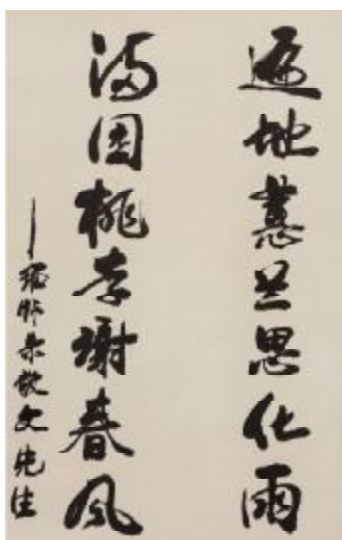 遍地蕙兰思化雨
满園桃李謝春风
朱敬文先生